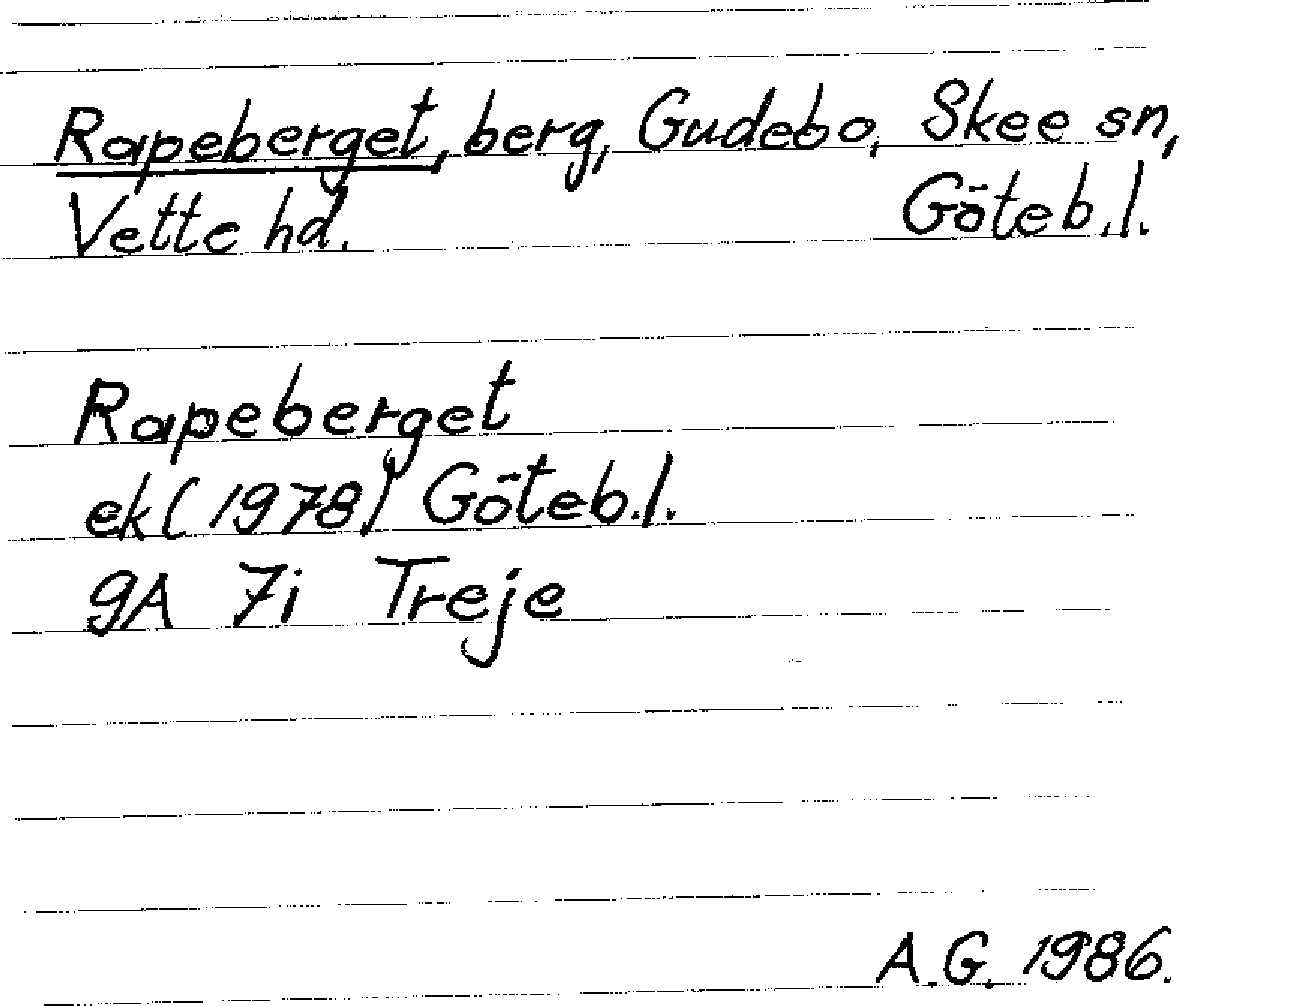 Rapeberget, berg, Gudebo, Skee sn,
Vette hd. Göteb.l.
Rapeberget
ek (1978) Göteb.l.
9A 7i Treje
A.G. 1986.